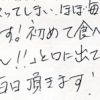 ってしまい、ほぼ毎
す!初めて食べ
ん!!」と口に出て
毎日頂きます!